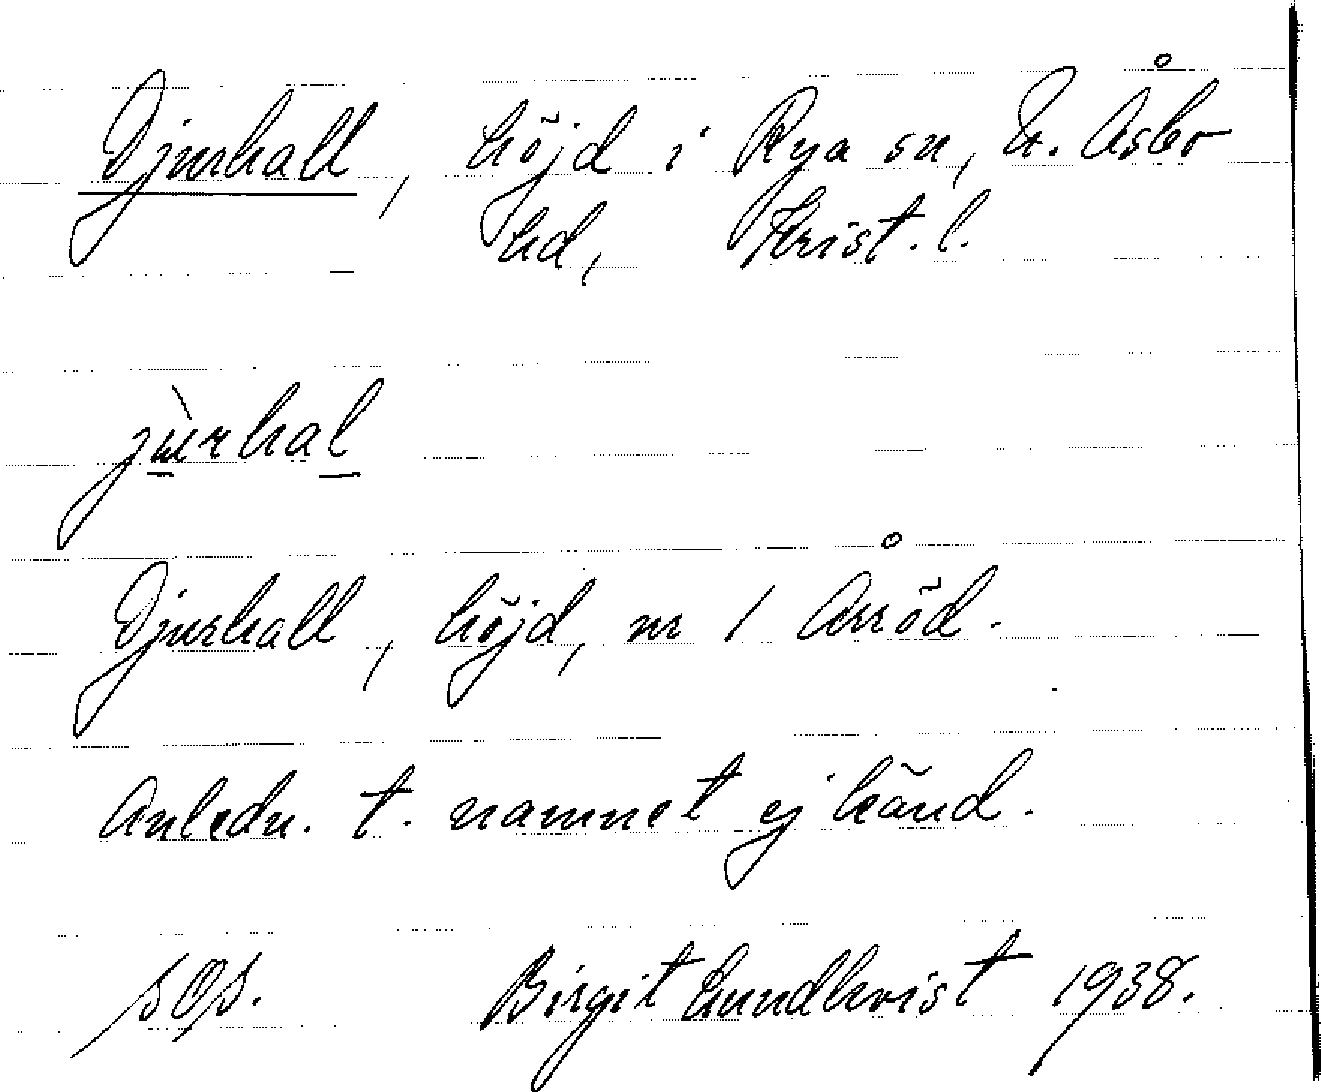 Djurhall, höjd i Rya sn, N. Åsbo
hd, Krist. l.
jùrhal
Djurhall, höjd, nr 1 Årröd.
Anledn. t. namnet ej känd.
Birgit Lundkvist 1938.